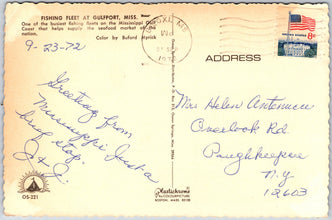 FISHING FLEET AT GULFPORT, MISS.
One of the busiest fishing fleets on the Mississippi Gulf
Coast that helps supply the seafood market of the
nation.
Color by Buford Myrick
9-23-72
Greetings from
Mississippi Just a
brief stop.
J & J.
OS-221
Plastichrome
BOSTON, MASS.
BILOXI, MS
ADDRESS
8c
Mrs Helen
Overlook Rd.
Poughkeepsie
N.Y
12603